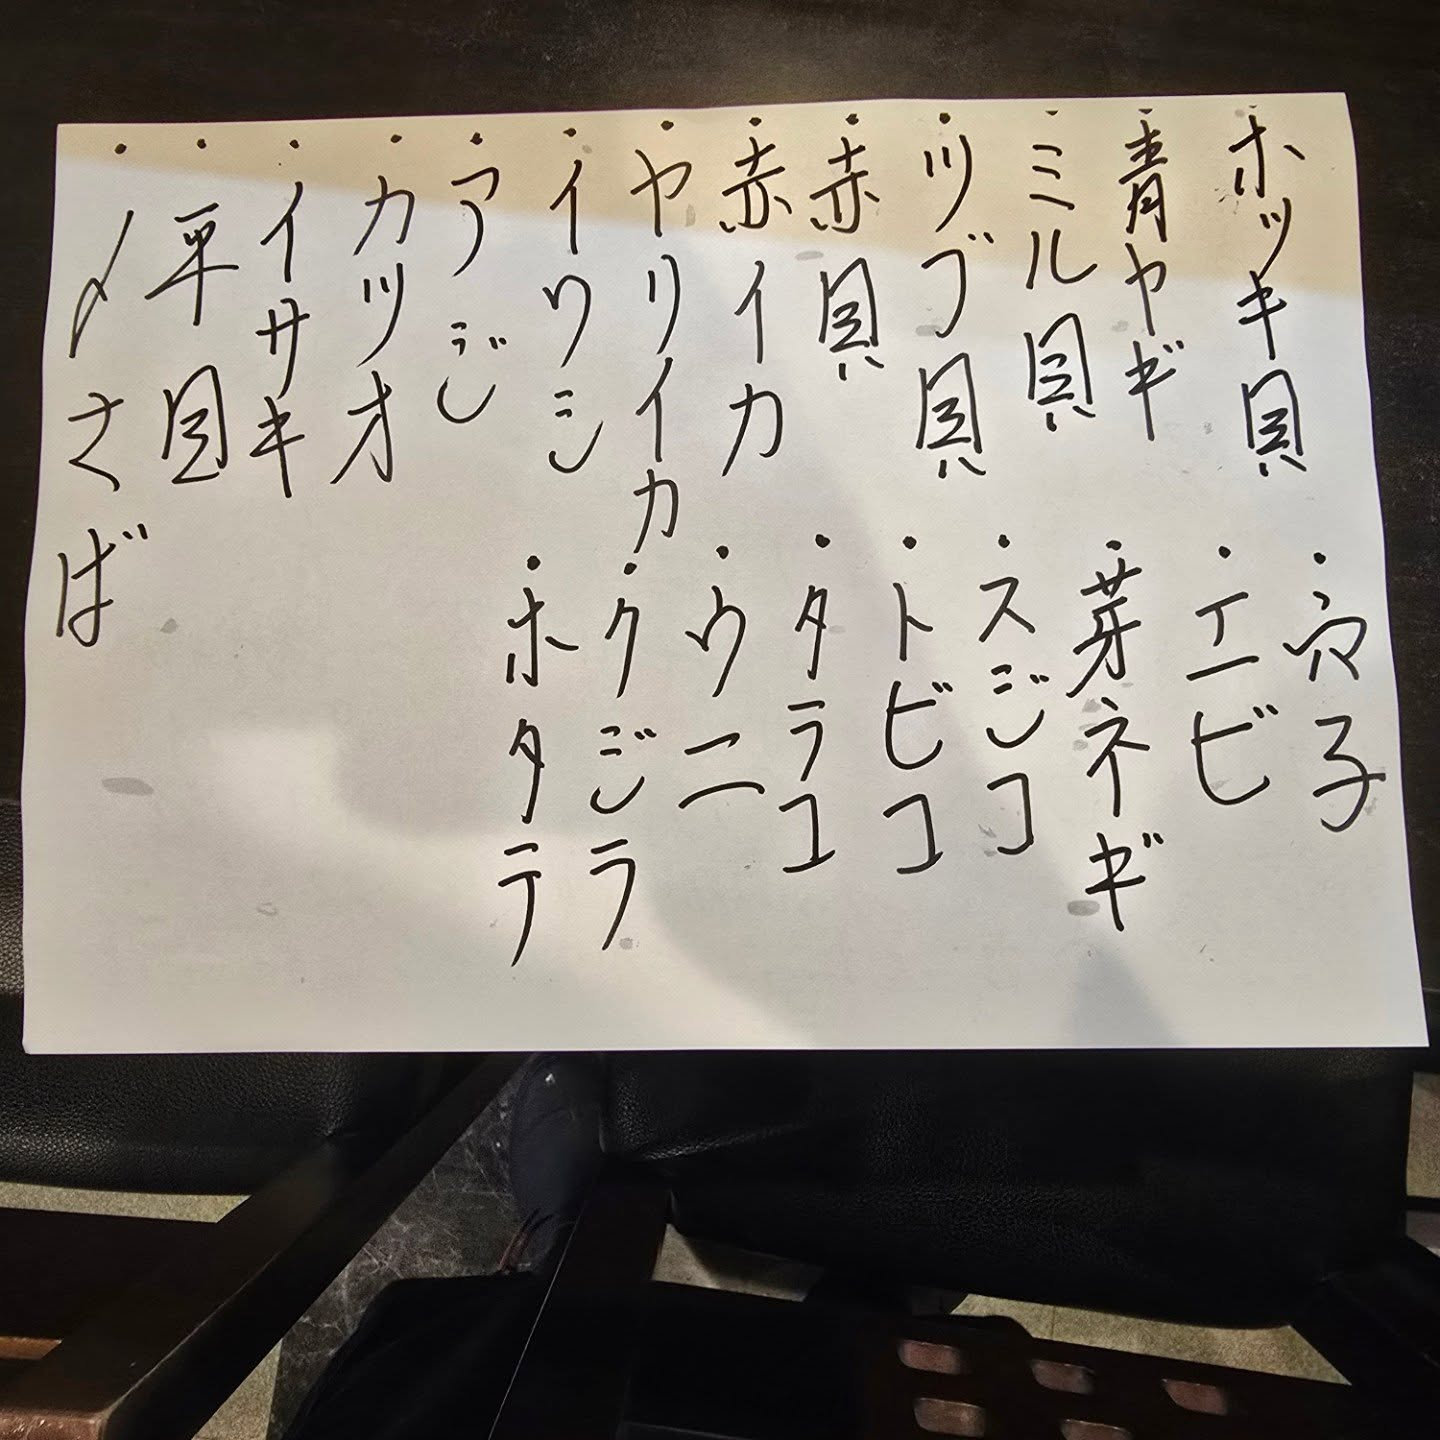 ・ホッキ貝
・青ヤギ
・ミル貝
・ツブ貝
・赤貝
・赤イカ
・ヤリイカ
・イワシ
・アジ
・カツオ
・イサキ
・平目
・〆さば
・穴子
・エビ
・芽ネギ
・スジコ
・トビコ
・タラコ
・ウニ
・クジラ
・ホタテ